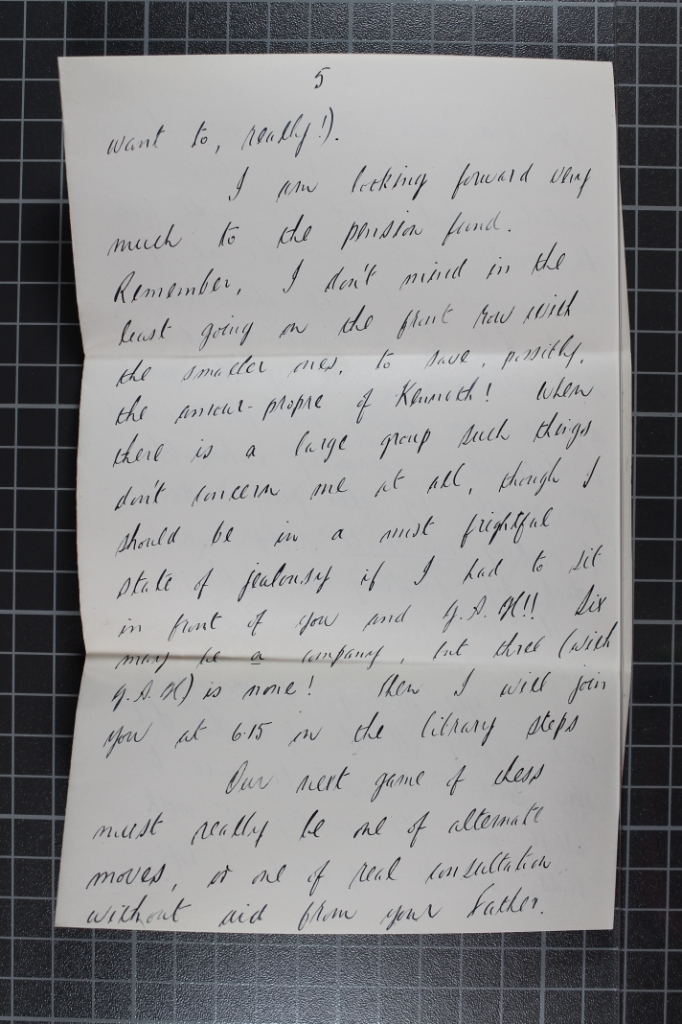 5
want to, really!).
I am looking forward very
much to the pension fund.
Remember, I don't mind in the
least going in the front row with
the smaller ones, to save, possibly,
the amour-propre of Kenneth! When
there is a large group such things
don't concern me at all, though I
should be in a most frightful
state of jealousy if I had to sit
in front of you and G.A.H!! Six
may be a company, but three (with
G.A.H) is none! Then I will join
you at 6.15 in the library steps
Our next game of chess
must really be one of alternate
moves, or one of real consultation
without aid from your Father.